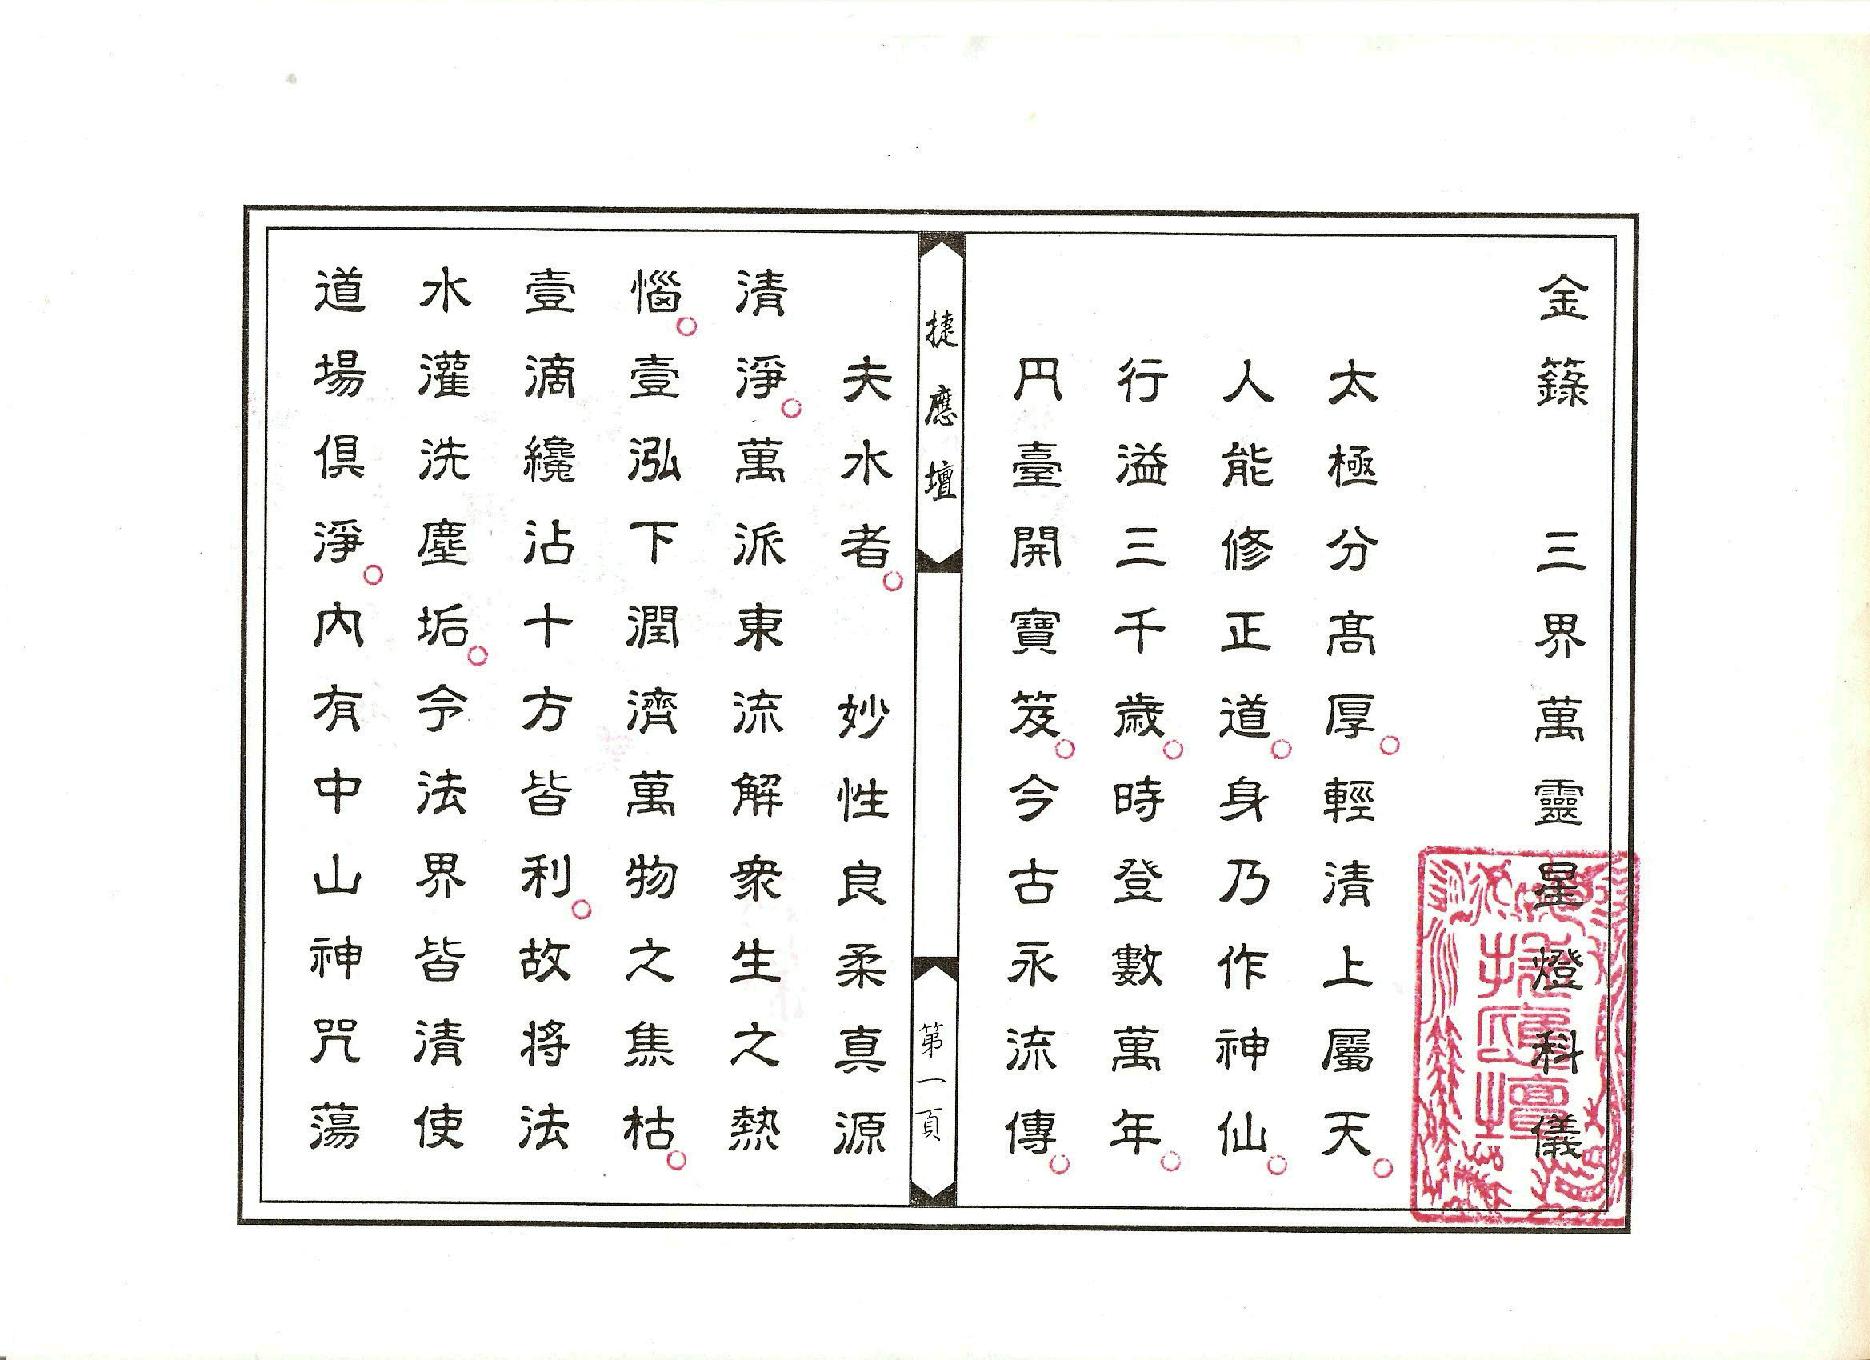 金籙　三界萬靈星燈科儀
太極分高厚。輕清上屬天。
人能修正道。身乃作神仙。
行溢三千歲。時登數萬年。
円臺開寶笈。今古永流傳。
捷應壇
第一頁
夫水者。　妙性良柔真源
清淨。萬派東流解衆生之熱
惱。壹泓下潤濟萬物之焦枯。
壹滴纔沾十方皆利。故將法
水灌洗塵垢。令法界皆清使
道場俱淨。內有中山神咒蕩